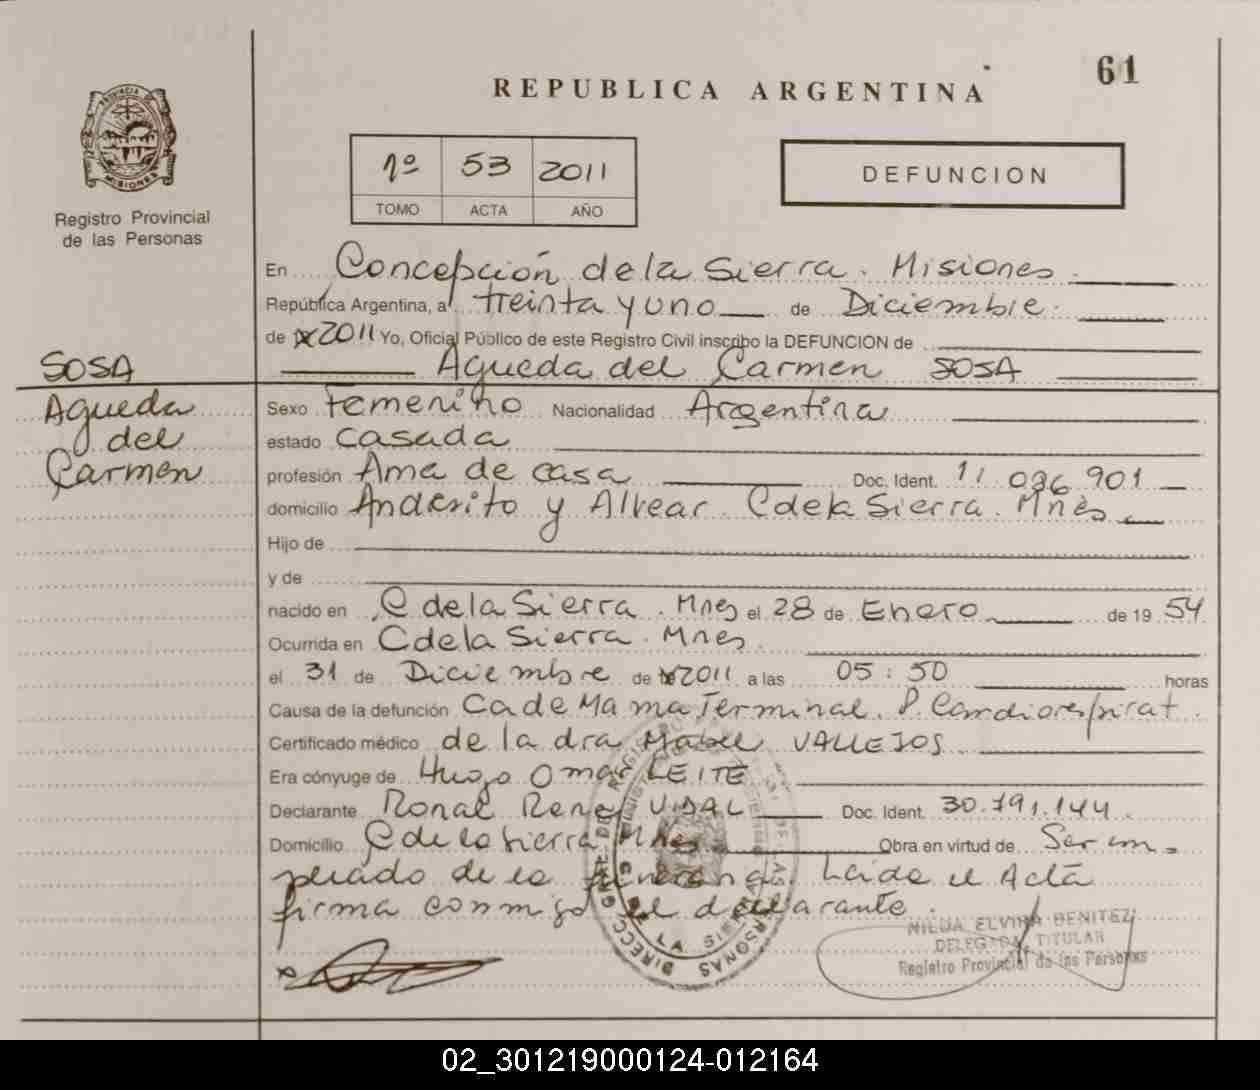 61
REPUBLICA ARGENTINA
PROVINCIA DE
MISIONES
Registro Provincial
de las Personas
1º 53 2011
TOMO ACTA AÑO
DEFUNCION
En Concepción de la Sierra. Misiones.
República Argentina, a treinta y uno de Diciembre.
de 2011 Yo, Oficial Público de este Registro Civil inscribo la DEFUNCION de
Agueda del Carmen SOSA
SOSA
Agueda
del
Carmen
Sexo Femenino Nacionalidad Argentina
estado Casada
profesión Ama de casa Doc. Ident. 11 036 901
domicilio Andresito y Alvear. C de la Sierra. Mnes.
Hijo de
y de
nacido en C de la Sierra. Mnes el 28 de Enero de 19 54
Ocurrida en C de la Sierra. Mnes.
el 31 de Diciembre de 2011 a las 05:50 horas
Causa de la defunción Ca de Mama Terminal. P. Cardiorespirat.
Certificado médico de la dra Mabel VALLEJOS
Era cónyuge de Hugo Omar LEITE
Declarante Ronal Rene VIDAL Doc. Ident. 30.791.144.
Domicilio C de la Sierra Mnes Obra en virtud de Ser em-
pleado de la funeraria. Leída el Acta
firma conmigo el declarante.
NILDA ELVIRA BENITEZ
DELEGADA TITULAR
Registro Provincial de las Personas
02_301219000124-012164